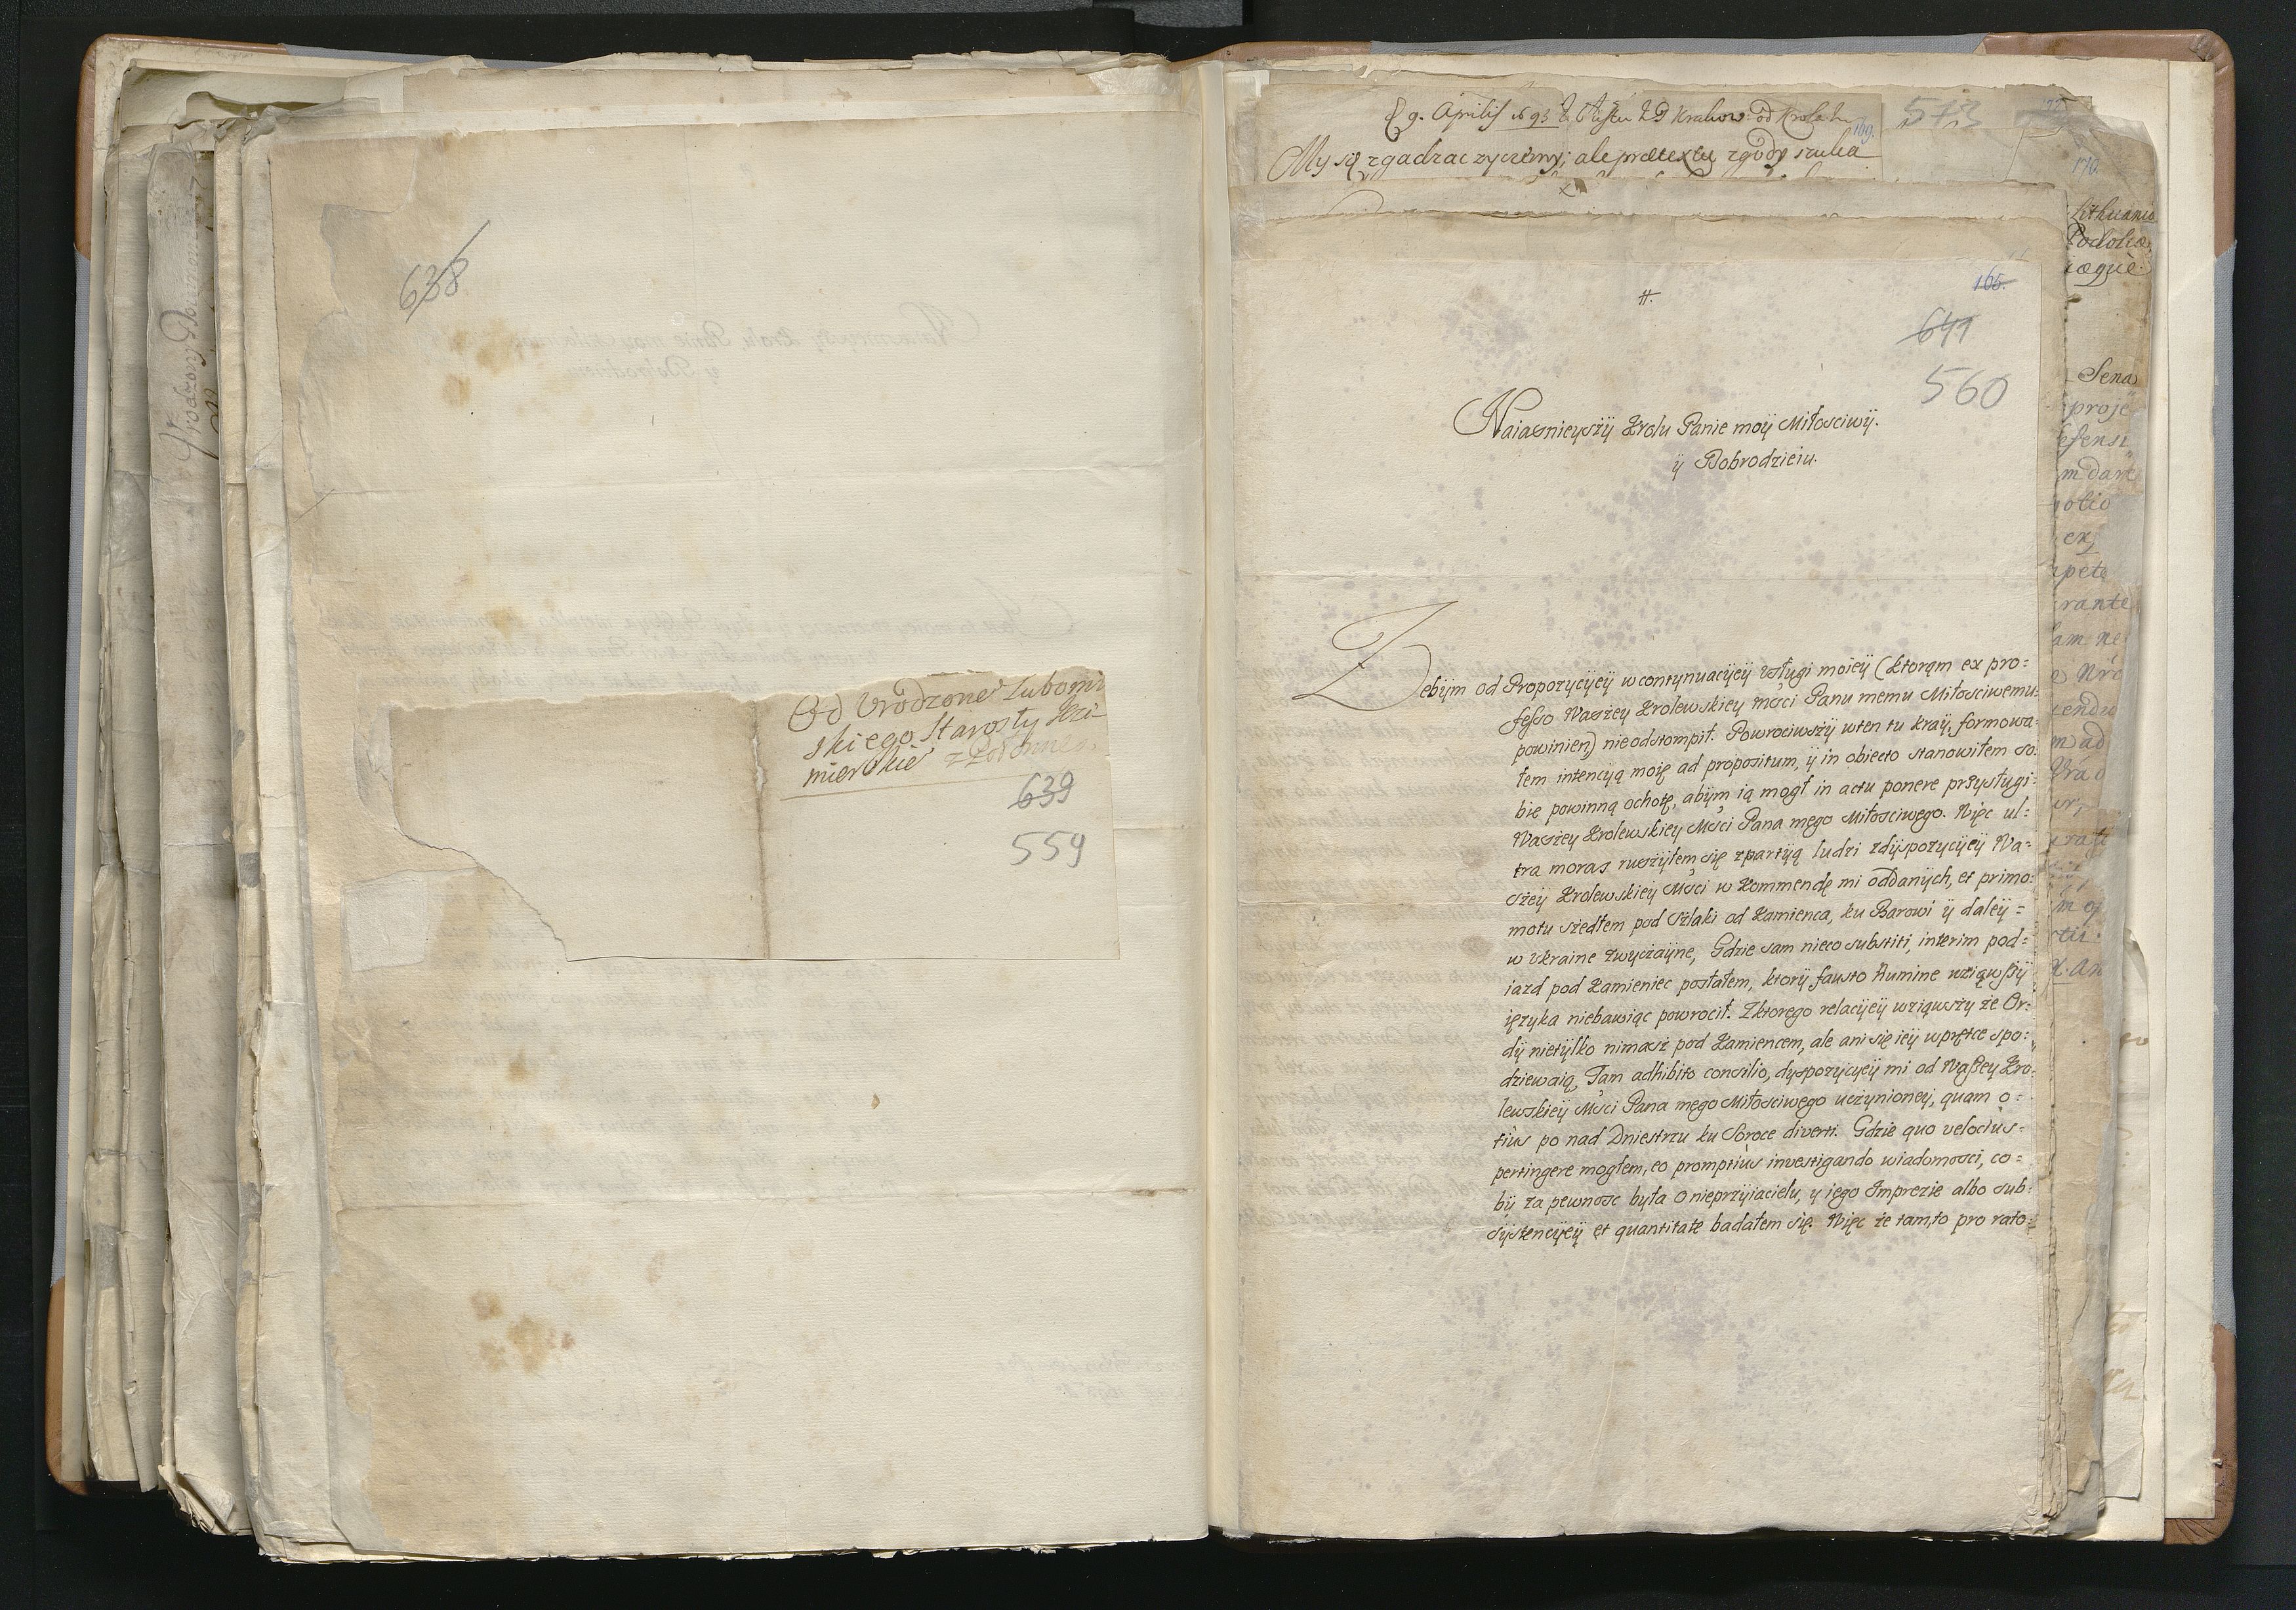 638
Od Urodzone° Lubomir
skiego Starosty Krzi
mierskie°
639
559
9. Aprilis 1693 Krakow od Krola
169.
573
My się zgadzac zyczemy; ale prætextu zgody szuka
170.
Lithuania
Podolia
iæque
#.
165.
641
560
Naiasnieyszÿ Krolu Panie moÿ Miłosciwÿ.
ÿ Dobrodzieiu.
Zebÿm od Propozycÿeÿ w contynuacÿeÿ Usługi moieÿ (ktorąm ex pro=
fesso Waszey Krolewskiey Mści Panu memu Miłosciwemu
powinien) nieodstompił. Powrociwszÿ wten tu kraÿ, formowa=
łem intencÿą moię ad propositum, ÿ in obiecto stanowiłem so=
bie powinną ochotę, abÿm ią mogł in actu ponere przÿsługi=
Waszey Krolewskiey Mści Pana mego Miłosciwego. Więc ul=
tra moras ruszÿłem się zpartÿą ludzi zdÿspozÿcÿeÿ Wa=
szeÿ Krolewskieÿ Mści w Kommendę mi oddanÿch, et primo=
motu szedłem pod Szlaki od Kamienca, ku Barowi ÿ daleÿ=
w Ukraine zwÿczaÿne, Gdzie sam nieco substiti, interim pod=
iazd pod Kamieniec posłałem, ktorÿ fausto Numine wziąwszÿ
ięzyka niebawiąc powrocił. Zktorego relacÿeÿ wziąwszy że Or=
dÿ nietÿlko nimasz pod Kamiencem, ale ani się ieÿ wprętce spo=
dziewaią, Tam adhibito consilio, dyspozÿcÿeÿ mi od Waszey Kro=
lewskieÿ Mści Pana mego Miłosciwego uczÿnioneÿ, quam o=
tiùs po nad Dniestrzu ku Soroce diverti. Gdzie quo velociùs=
pertingere mogłem, eo promptiùs investigando wiadomosci, co=
bÿ za pewnosc była o nieprzÿiacielu, y iego Imprezie albo sub=
sÿstencÿeÿ et quantitate badałem się. Więc że tam, to pro rato=
Sena
proje
efensi
m dare
otio
ex
pete
rante
am ne
m ad